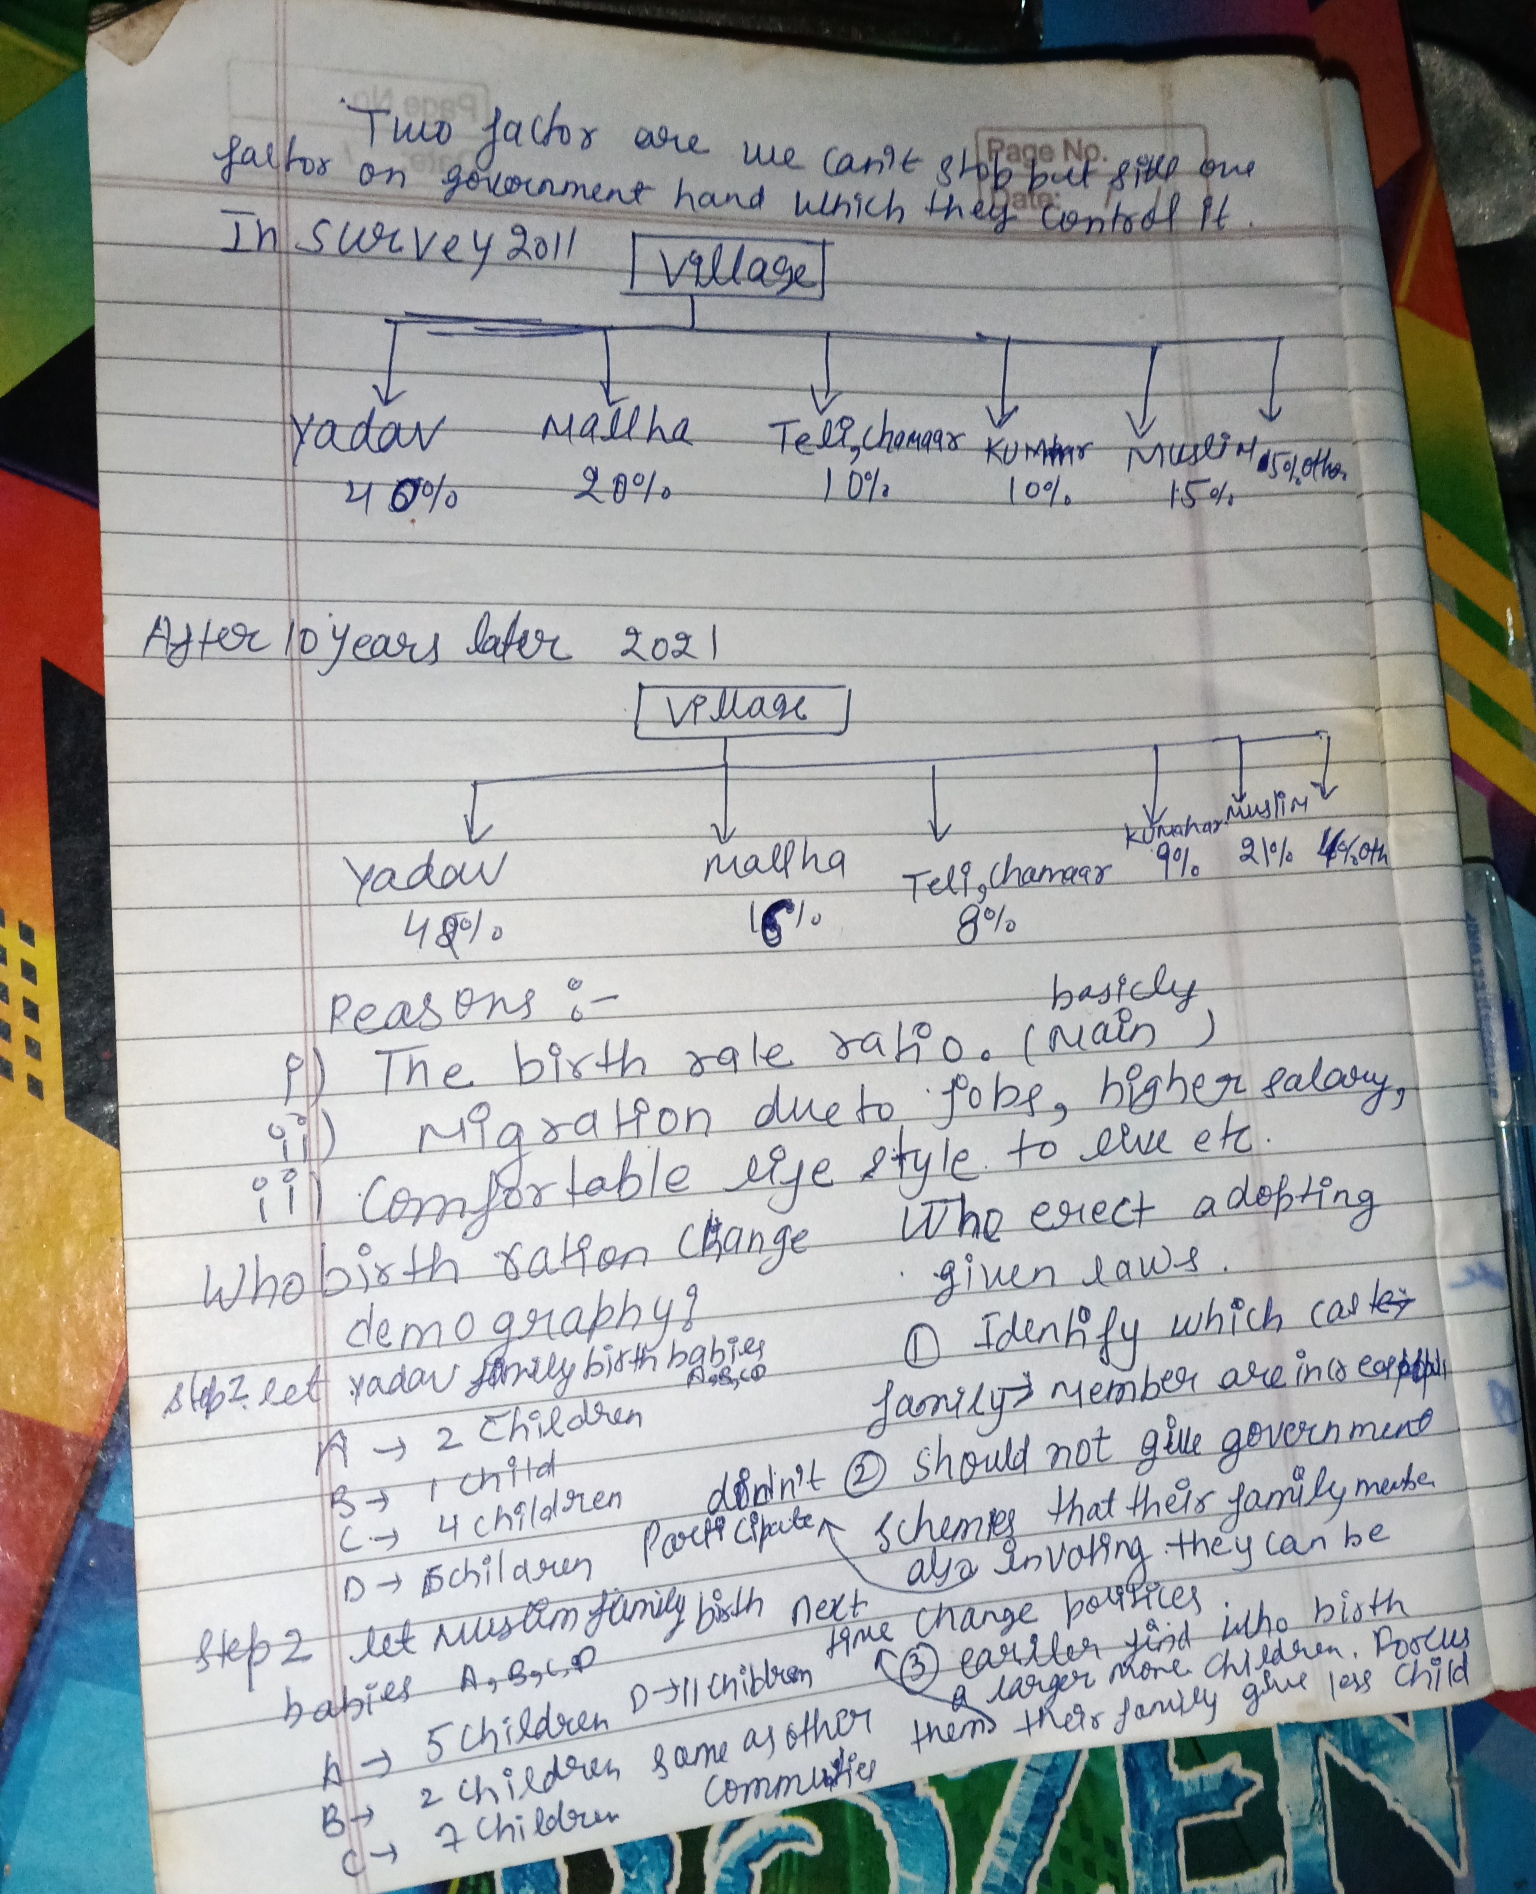 Page No.
Date:
Two factor are we can't stop but give one
factor on government hand which they control it.
In survey 2011
Village
Yadav
Mallha
Teli, Chamaar
Muslim
5% other
40%
20%
10%
10%
15%
After 10 years later 2021
Village
Yadav
Mallha
Teli, Chamaar
Kumahar
Muslim
48%
16%
8%
9%
21%
4% oth
Reasons :-
basicly
i) The birth rate ratio. (Main)
ii) Migration due to jobs, higher salary,
iii) Comfortable life style to live etc.
Who birth ration change
demography?
Step 1. let yadav family birth babies
A, B, C, D
A → 2 Children
B → 1 child
C → 4 children
D → 5 children
Step 2 let Muslim family birth
babies A, B, C, D
A → 5 Children D → 11 children
B → 2 children
C → 7 Children
Who erect adopting
given laws.
① Identify which caste
family member are
② should not give government
schemes that their family member
also in voting they can be
change politices
didn't
Participate
next
time
③ eariler find who birth
a larger more children. Forcus
them their family give less child
same as other
communities